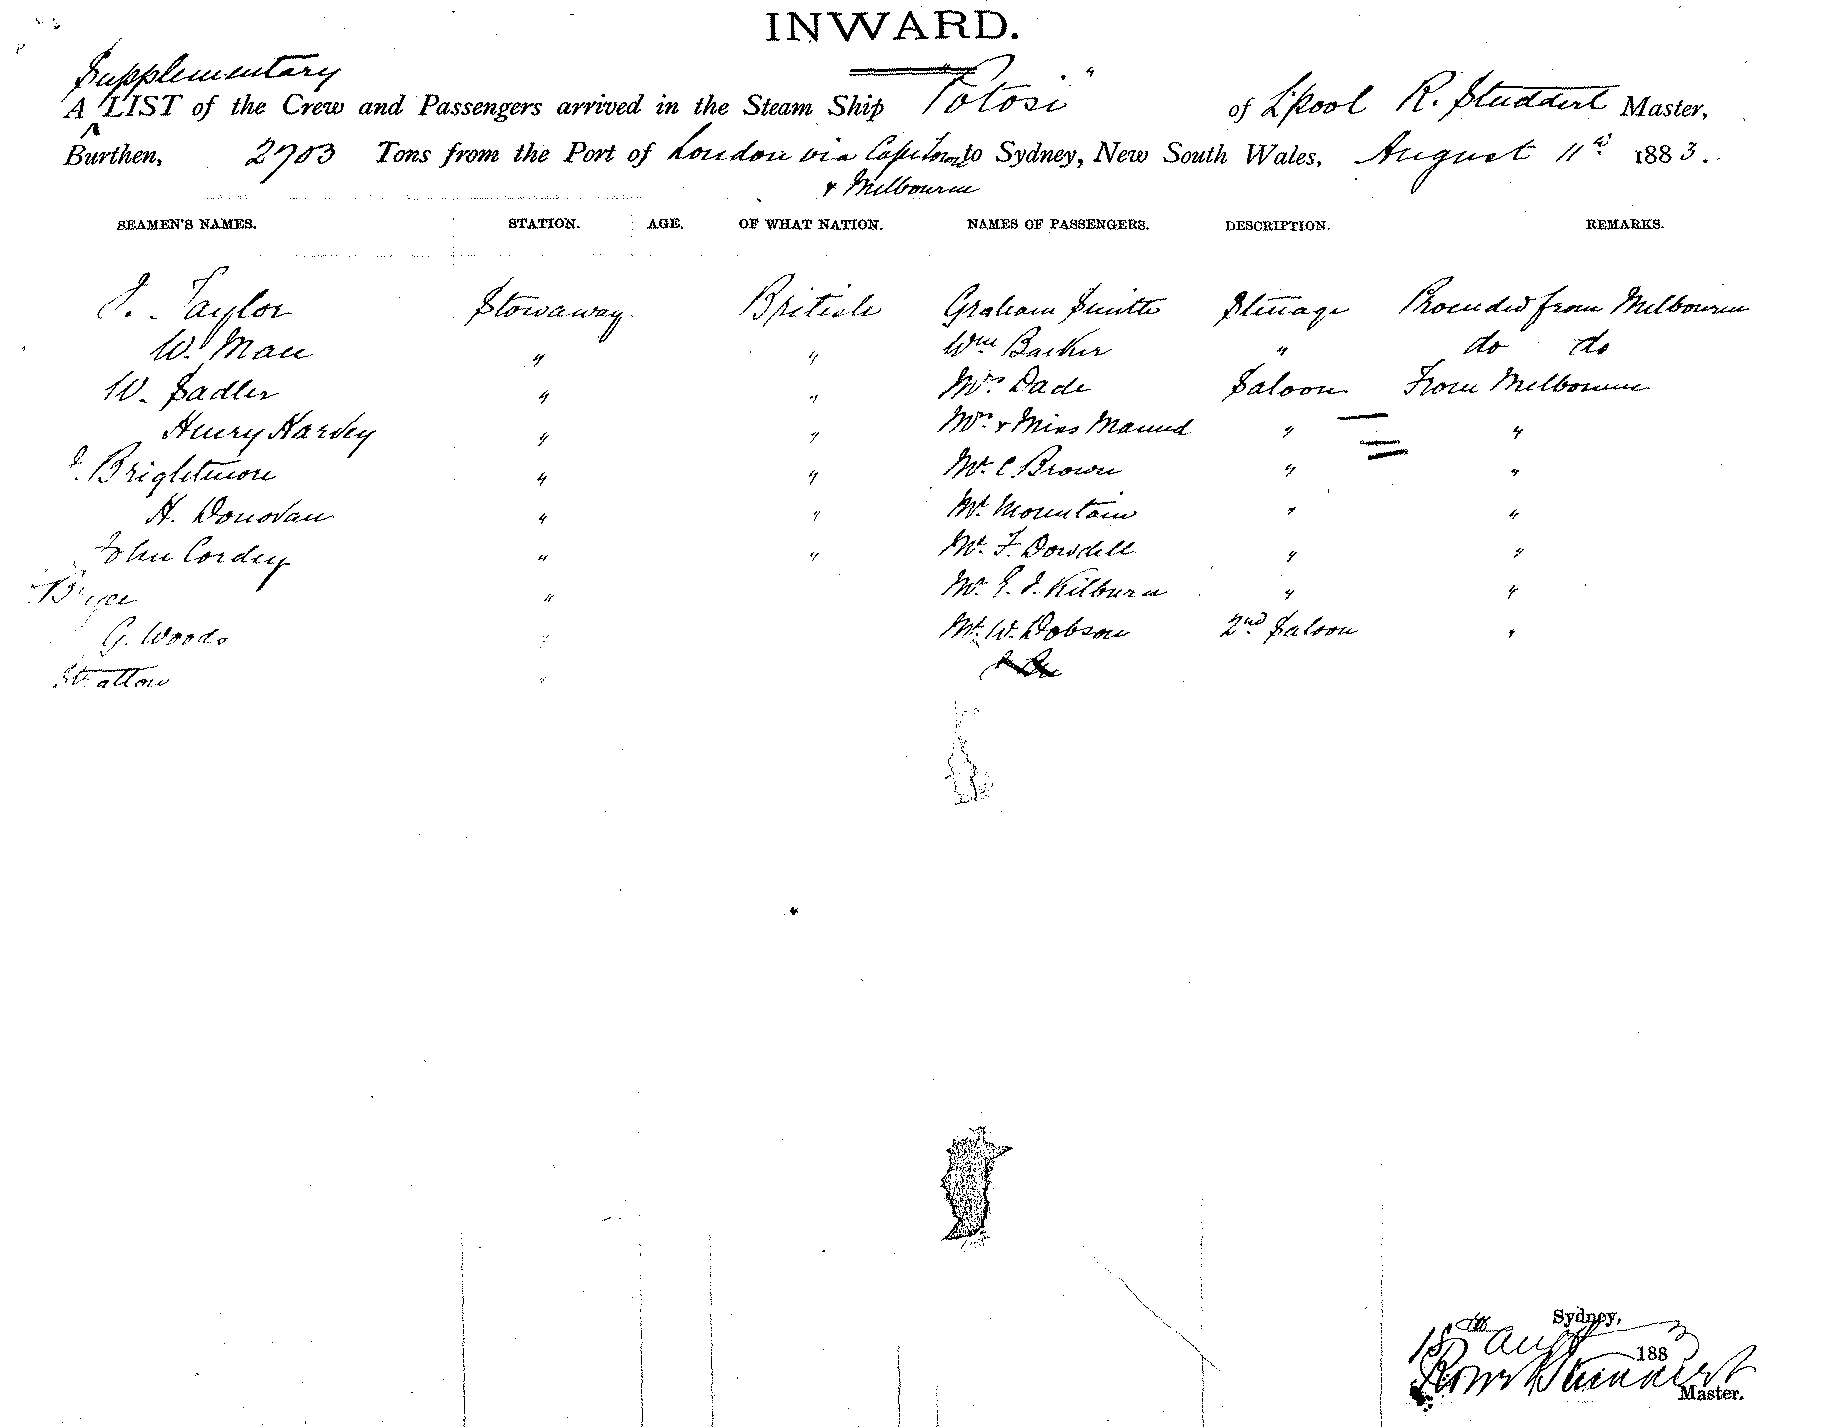 INWARD.
Supplementary
A LIST of the Crew and Passengers arrived in the Steam Ship "Potosi" of L'pool R. Studdert Master,
Burthen, 2703 Tons from the Port of London via Cape Town to Sydney, New South Wales, August 11th 1883.
& Melbourne
SEAMEN'S NAMES. STATION. AGE. OF WHAT NATION. NAMES OF PASSENGERS. DESCRIPTION. REMARKS.
Taylor Stowaway British Graham Smith Steerage from Melbourne
W. Man " " Wm Barker " do do
W. Sadler " " Dade Saloon From Melbourne
Henry Harvey " " & Miss Maund " "
Brightmore " " Mr. C. Brown " "
H. Donovan " " Mr. Mountain " "
John Cordey " " Mr. F. Dowdell " "
Bryce " Mr. E. J. Kilburn " "
G. Woods " Mr. W. Dobson 2nd Saloon "
Stratton "
Sydney,
Augt 188
Master.